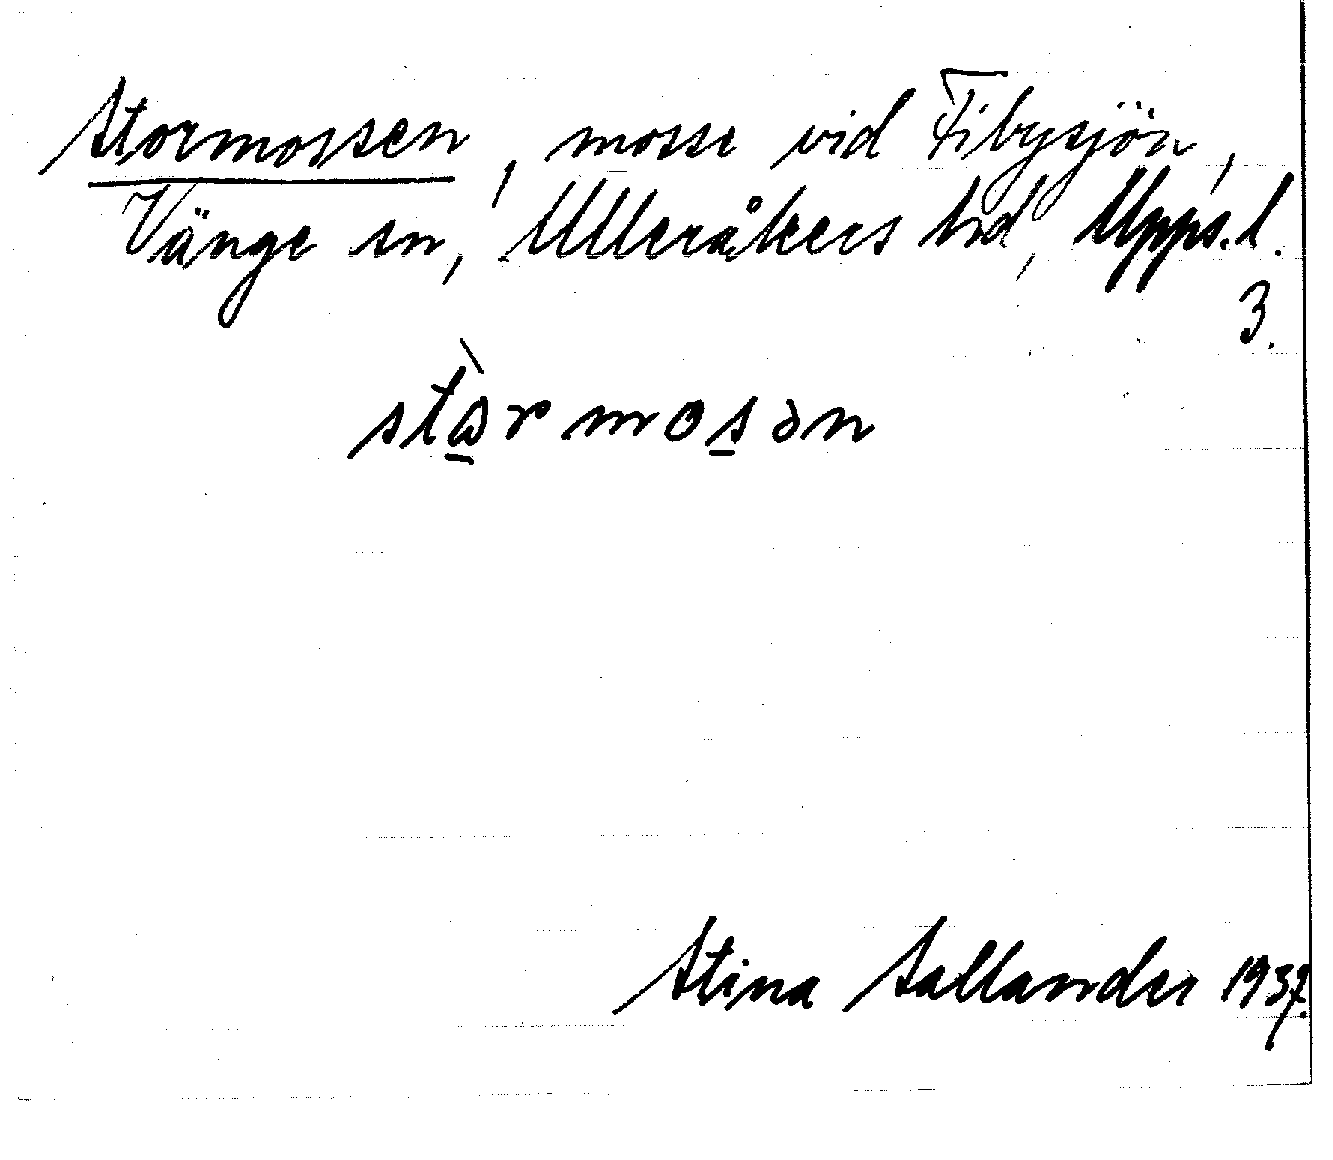 Stormossen, mosse vid Fibysjön,
Vänge sn, Ulleråkers hd, Upps.l.
3.
stò̱rmos̱ən
Stina Sallander 1937.